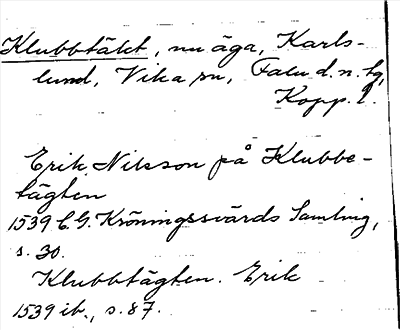 Klubbtäkt, nu äga, Karls-
lund, Vika sn, Falu d. n. tg,
Kopp. l.
Erik Nilsson på Klubbe-
tägten
1539 C. G. Kröningssvärds Samling,
s. 30.
Klubbtägten. Erik
1539 ib., s. 87.